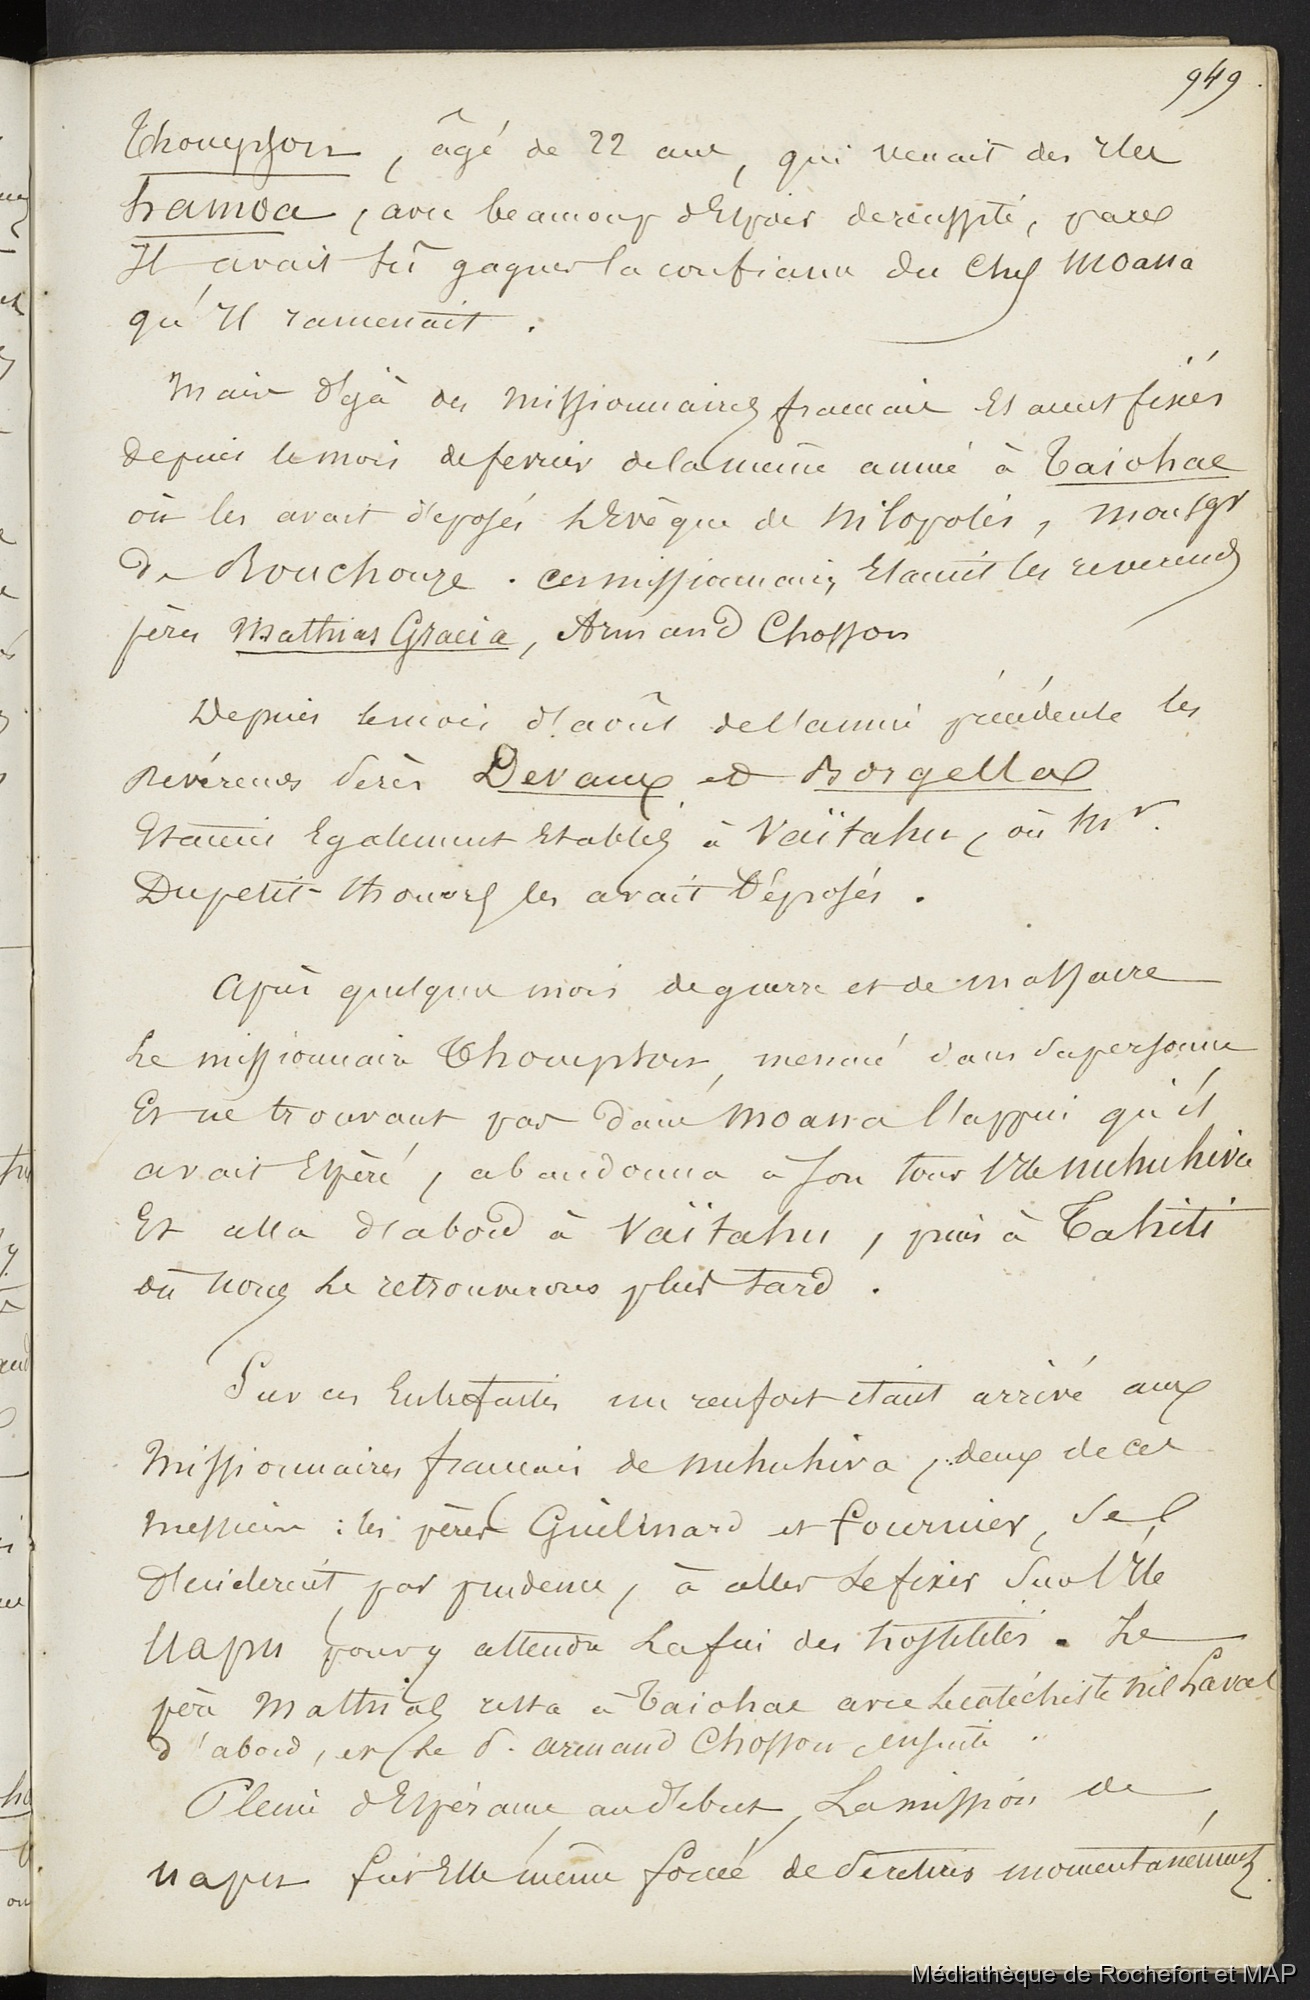 949
Thompson, âgé de 22 ans, qui venait des Iles
hamoa, avec beaucoup d'Espoir de réussite, parce
Il avait sû gagner la confiance du Chef Moana
qu'Il ramenait.
Mais déjà des Missionnaires français Etaient fixés
depuis le mois de fevrier de la même année à Taiohae
où les avait déposés l'Evêque de Nilopolis, Monsgr
de Rouchouze. ces missionnaires Etaient les reverends
pères Mathias Gracia, Armand Chosson
Depuis le mois d'août de l'année précédente les
Révérends Pères Devaux et Borgella
Etaient Egalement Etablis à Vaïtahu, où Mr.
Dupetit-thouars les avait Déposés.
Après quelques mois de guerre et de massacre
Le missionnaire Thompson, menacé dans sa personne
Et ne trouvant pas dans Moana l'appui qu'il
avait Espéré, abandonna à son tour l'Ile nuhuhiva
Et alla d'abord à Vaïtahu, puis à Tahiti
où nous le retrouverons plus tard.
Sur ces Entrefaites un renfort était arrivé aux
Missionnaires français de nuhuhiva, deux de ces
Messieurs : les pères Guilmard et fournier, se
déciderent par prudence, à aller se fixer sur l'Ile
Uapu pour y attendre la fin des hostilités. Le
père Mathias resta à Taiohae avec le catéchiste Nil Laval
d'abord, et le P. armand Chosson ensuite.
Pleine d'Espérance au début, La mission de
uapu fut Elle même forcée de se retirer momentanément
Médiathèque de Rochefort et MAP